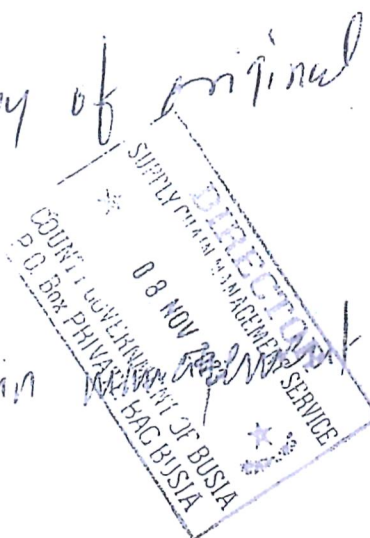 of original
DIRECTOR
SUPPLY CHAIN MANAGEMENT SERVICE
08 NOV
COUNTY GOVERNMENT OF BUSIA
P.O. Box PRIVATE BAG BUSIA
in